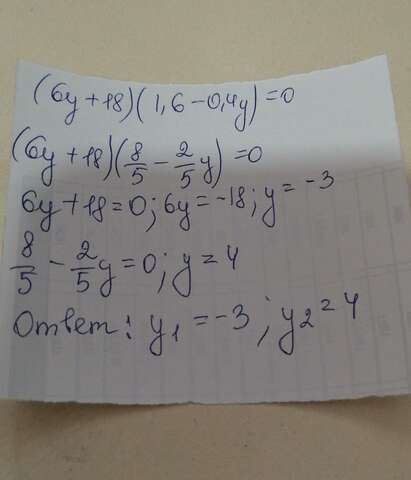 (6y+18)(1,6-0,4y)=0
(6y+18)(8/5-2/5y)=0
6y+18=0; 6y=-18; y=-3
8/5-2/5y=0; y=4
Ответ: y₁=-3; y₂=4